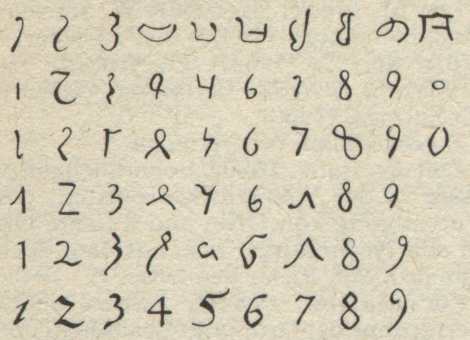 1 2 3
1 2 3 4 5 6 7 8 9 0
1 2 3 4 5 6 7 8 9 0
1 2 3 4 5 6 7 8 9
1 2 3 4 5 6 7 8 9
1 2 3 4 5 6 7 8 9